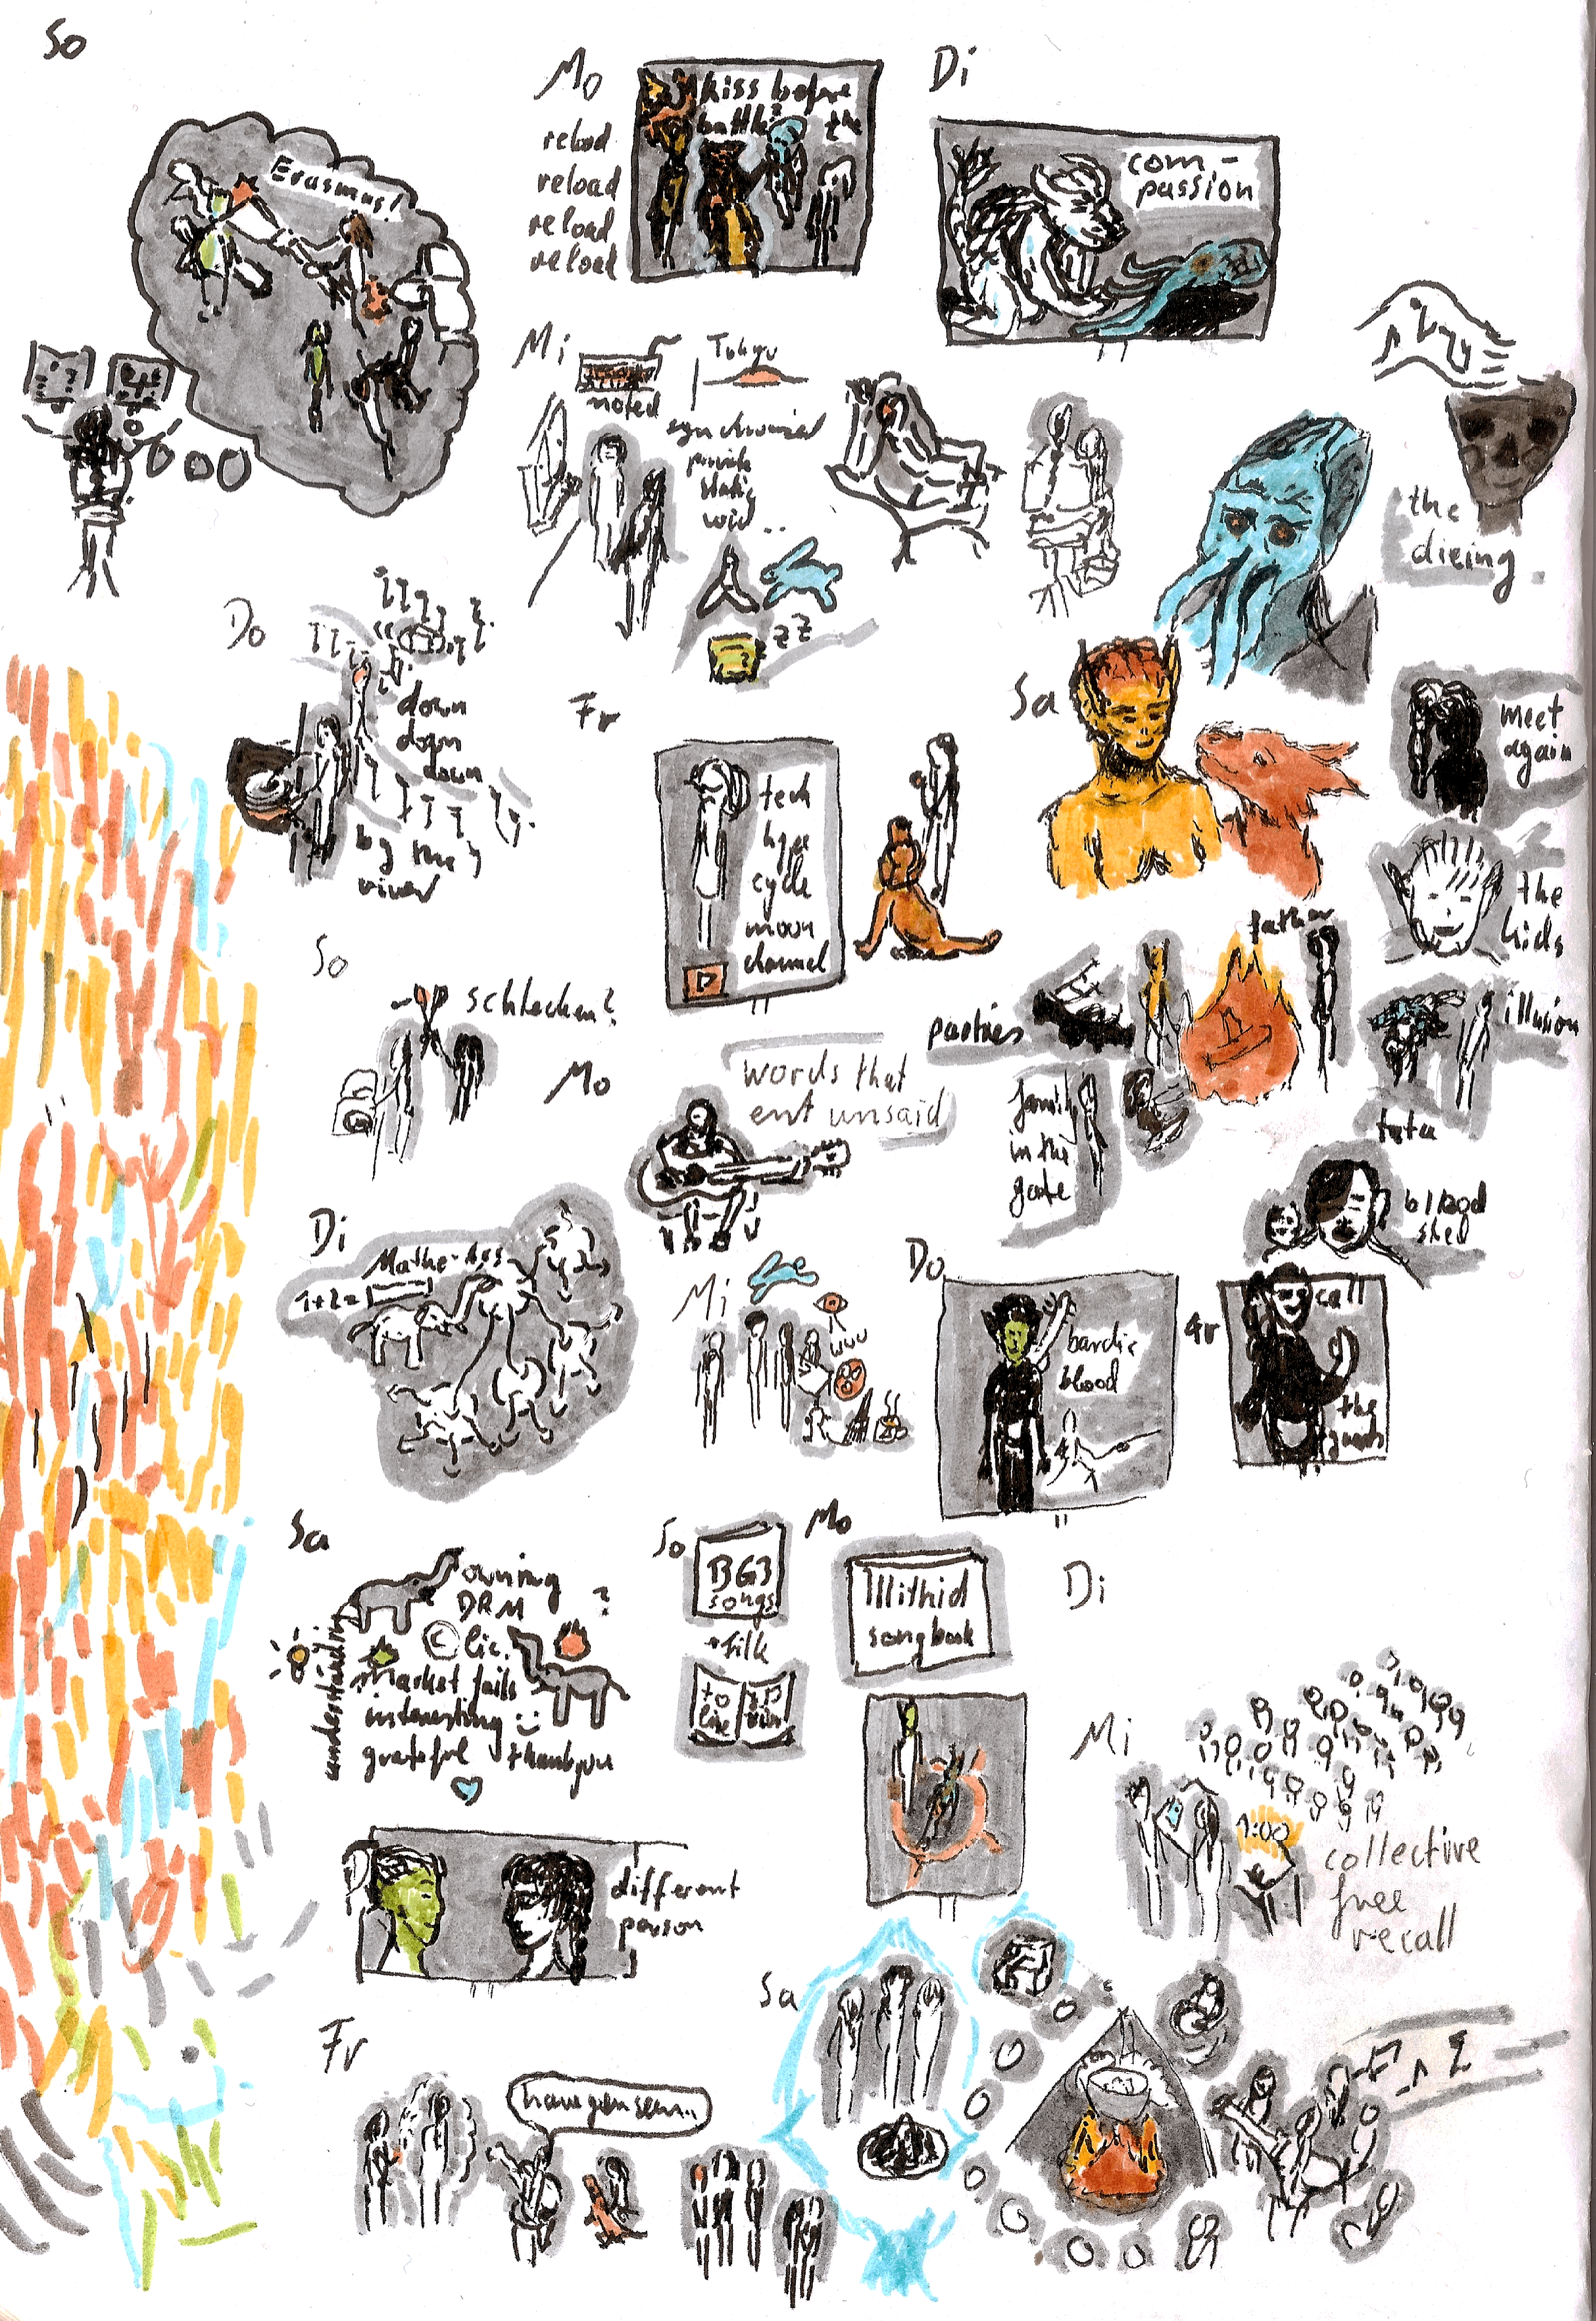 So
Erasmus!
Mo
reload
reload
reload
reload
kiss before
battle?
the
Di
com-
passion
Mi
noted
Tokyo
synchronized
private
static
void..
zZ
the
dieing.
Do
down
down
down
by the
river
Fr
tech
hype
cycle
moon
channel
Sa
meet
again
the
kids
illusion
tata
father
parties
family
in the
gate
blood
shed
So
schlecken?
Mo
words that
ent unsaid
Di
Mathe-
1+2=
Mi
Do
bardic
blood
Fr
call
the
guards
Sa
owning
DRM
?
© lic.
understanding
market fails
interesting :)
grateful thankyou
So
BG3
songs
+filk
to
live
Mo
Illithid
songbook
Di
Mi
1:00
collective
free
recall
different
person
Fr
have you seen..
Sa